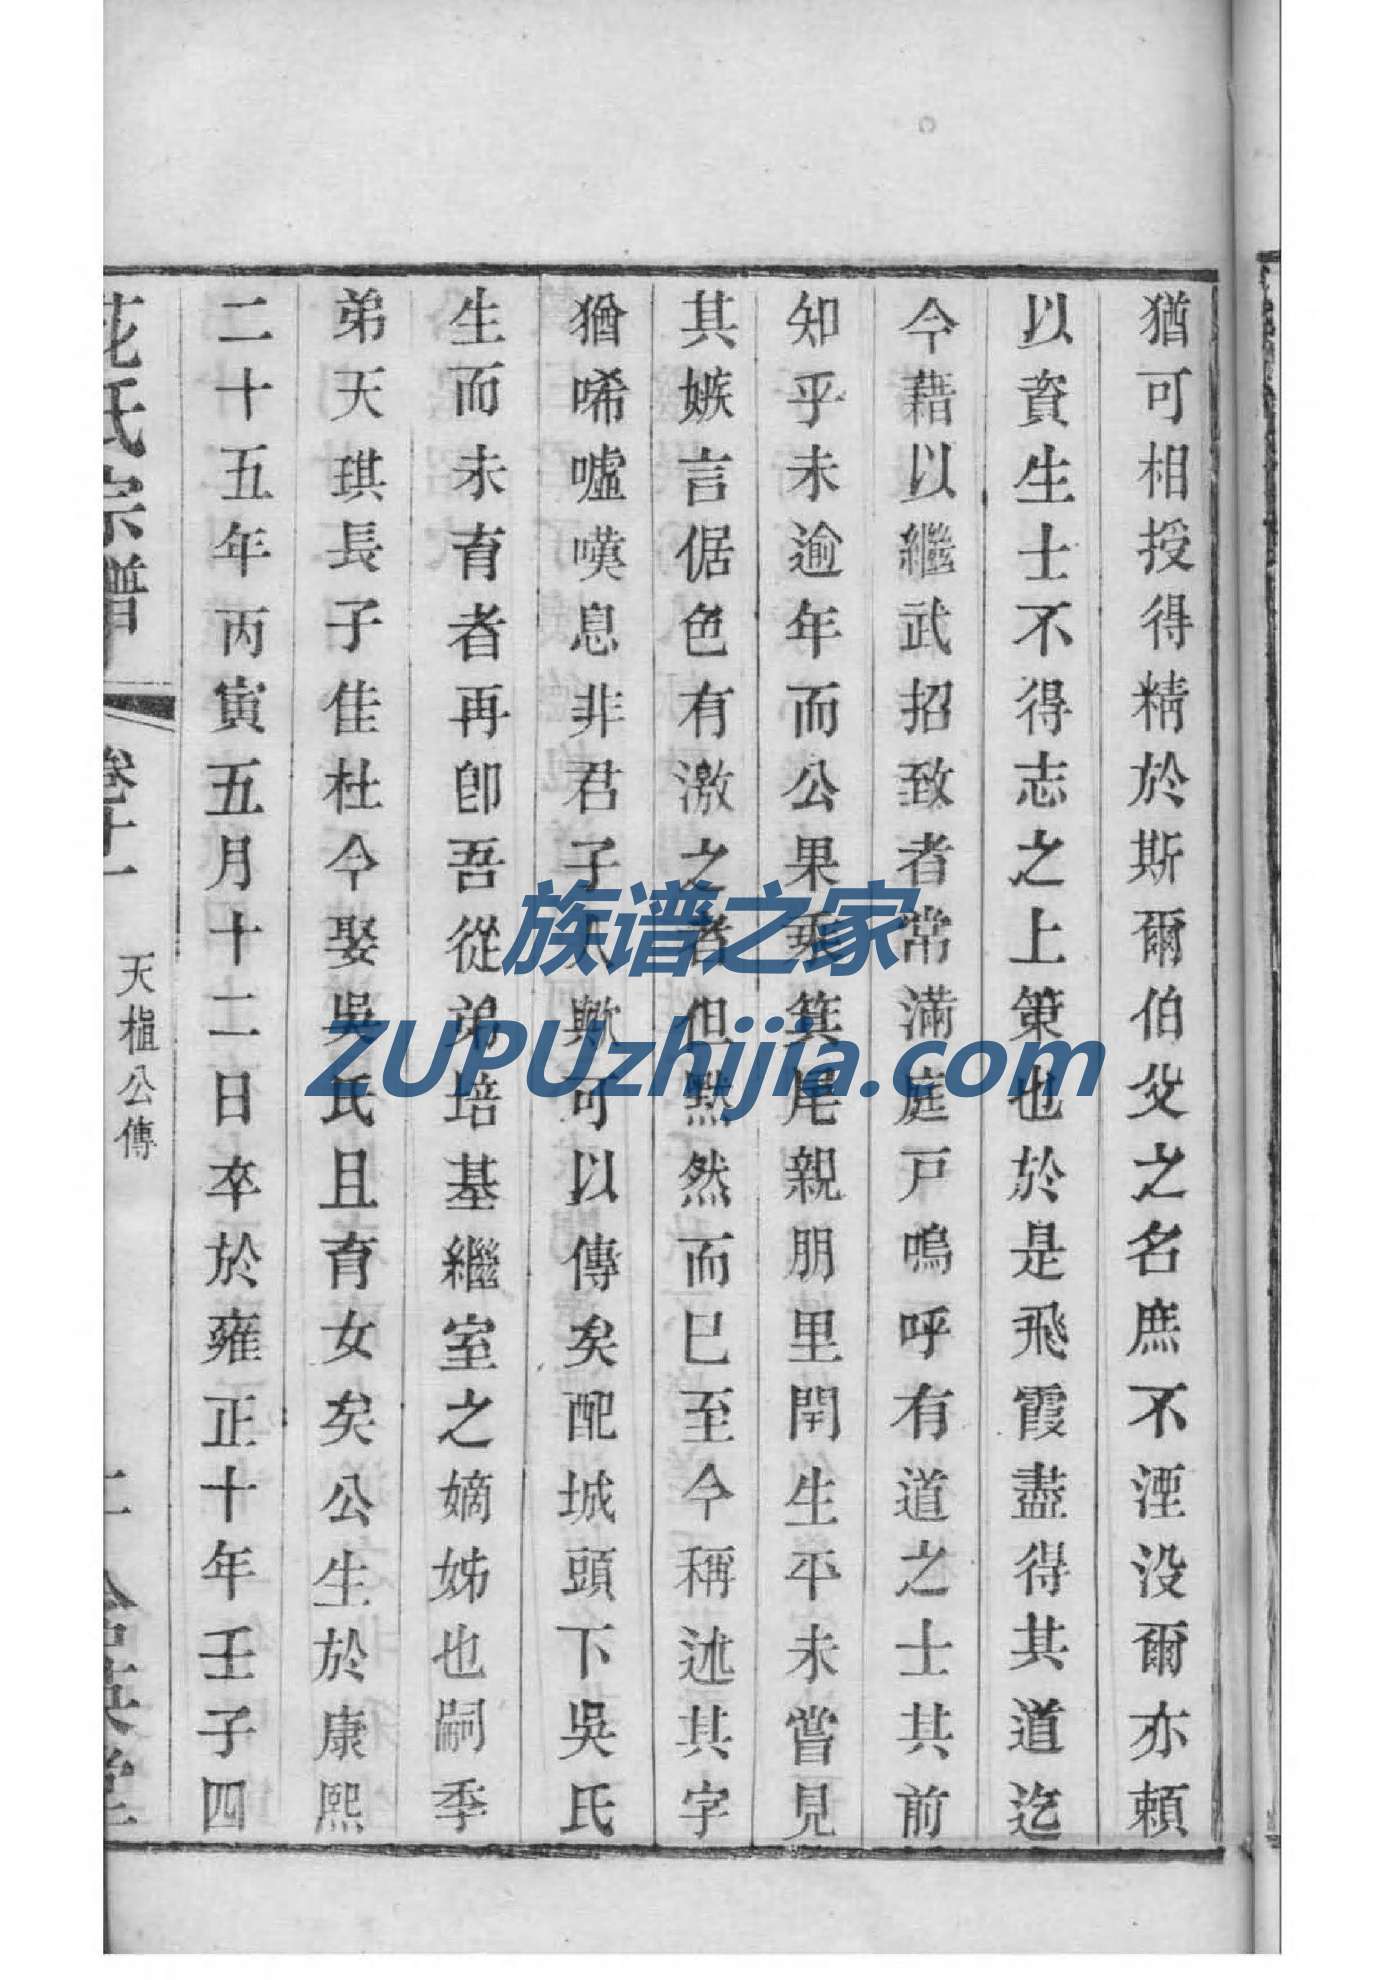 猶可相授得精於斯爾伯父之名庶不湮没爾亦頼
以資生士不得志之上策也於是飛霞盡得其道迄
今藉以繼武招致者常滿庭戸嗚呼有道之士其前
知乎未逾年而公果乘箕尾親朋里閈生平未嘗見
其嫉言倨色有激之者但黙然而已至今稱述其字
猶唏噓嘆息非君子人歟可以傳矣配城頭下吳氏
生而未育者再卽吾從弟培基繼室之嫡姊也嗣季
弟天琪長子佳杜今娶吳氏且育女矣公生於康熙
二十五年丙寅五月十二日卒於雍正十年壬子四
花氏宗譜
卷十一
天植公傳
族谱之家
ZUPUzhijia.com